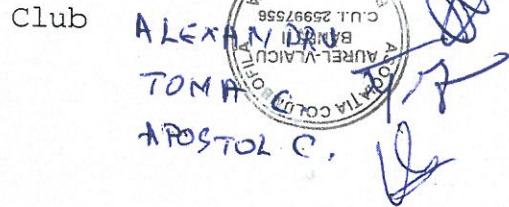 Club
ALEXANDRU
TOMA C.
APOSTOL C.
ASOCIAȚIA COLUMBOFILA
AUREL-VLAICU
C.U.I. 25997556